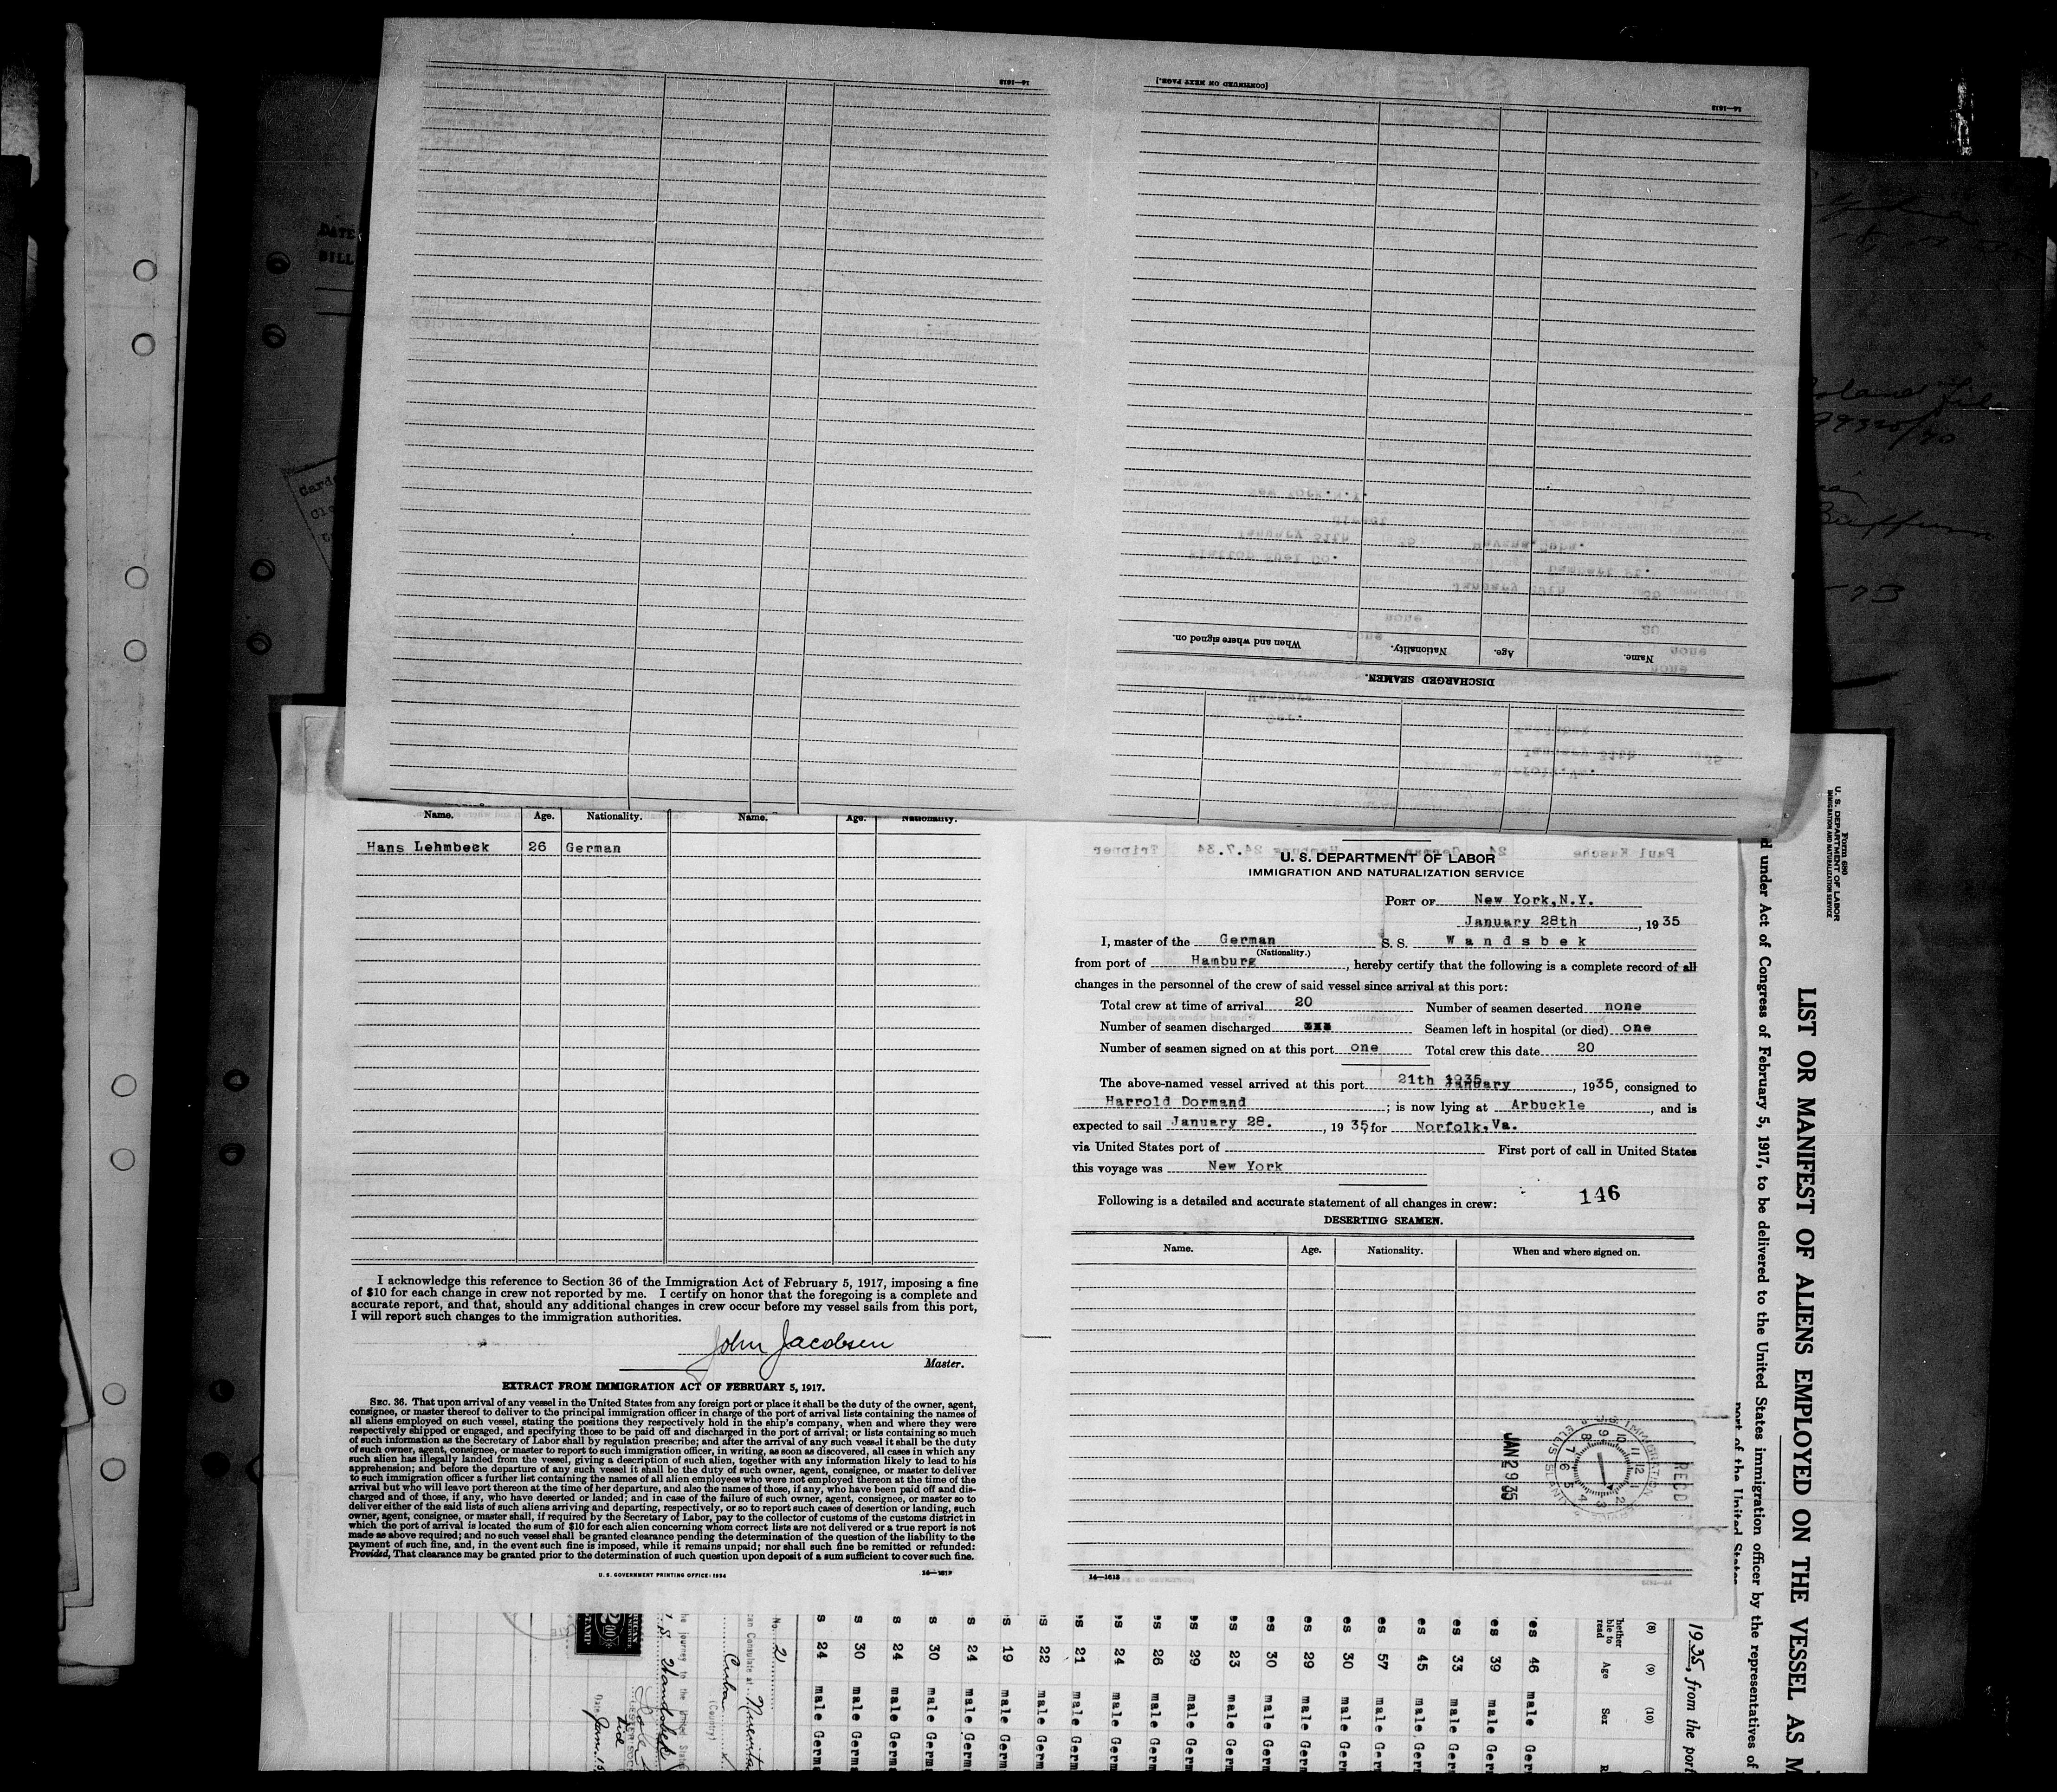 14—1613
[CONTINUED ON NEXT PAGE.]
14—1613
DATE
BILL
When and where signed on.
Nationality.
Age.
Name.
DISCHARGED SEAMEN.
Name. Age. Nationality. Name. Age. Nationality.
Hans Lehmbeck 26 German
I acknowledge this reference to Section 36 of the Immigration Act of February 5, 1917, imposing a fine
of $10 for each change in crew not reported by me. I certify on honor that the foregoing is a complete and
accurate report, and that, should any additional changes in crew occur before my vessel sails from this port,
I will report such changes to the immigration authorities.
John Jacobsen
Master.
EXTRACT FROM IMMIGRATION ACT OF FEBRUARY 5, 1917.
SEC. 36. That upon arrival of any vessel in the United States from any foreign port or place it shall be the duty of the owner, agent,
consignee, or master thereof to deliver to the principal immigration officer in charge of the port of arrival lists containing the names of
all aliens employed on such vessel, stating the positions they respectively hold in the ship's company, when and where they were
respectively shipped or engaged, and specifying those to be paid off and discharged in the port of arrival; or lists containing so much
of such information as the Secretary of Labor shall by regulation prescribe; and after the arrival of any such vessel it shall be the duty
of such owner, agent, consignee, or master to report to such immigration officer, in writing, as soon as discovered, all cases in which any
such alien has illegally landed from the vessel, giving a description of such alien, together with any information likely to lead to his
apprehension; and before the departure of any such vessel it shall be the duty of such owner, agent, consignee, or master to deliver
to such immigration officer a further list containing the names of all alien employees who were not employed thereon at the time of the
arrival but who will leave port thereon at the time of her departure, and also the names of those, if any, who have been paid off and dis-
charged and of those, if any, who have deserted or landed; and in case of the failure of such owner, agent, consignee, or master so to
deliver either of the said lists of such aliens arriving and departing, respectively, or so to report such cases of desertion or landing, such
owner, agent, consignee, or master shall, if required by the Secretary of Labor, pay to the collector of customs of the customs district in
which the port of arrival is located the sum of $10 for each alien concerning whom correct lists are not delivered or a true report is not
made as above required; and no such vessel shall be granted clearance pending the determination of the question of the liability to the
payment of such fine, and, in the event such fine is imposed, while it remains unpaid; nor shall such fine be remitted or refunded:
Provided, That clearance may be granted prior to the determination of such question upon deposit of a sum sufficient to cover such fine.
U. S. GOVERNMENT PRINTING OFFICE: 1934
14—1613
U. S. DEPARTMENT OF LABOR
IMMIGRATION AND NATURALIZATION SERVICE
PORT OF New York,N.Y.
January 28th , 1935
I, master of the German S. S. Wandsbek
(Nationality.)
from port of Hamburg , hereby certify that the following is a complete record of all
changes in the personnel of the crew of said vessel since arrival at this port:
Total crew at time of arrival 20 Number of seamen deserted none
Number of seamen discharged xxx Seamen left in hospital (or died) one
Number of seamen signed on at this port one Total crew this date 20
The above-named vessel arrived at this port 21th 1935 January , 1935, consigned to
Harrold Dormand ; is now lying at Arbuckle , and is
expected to sail January 28. , 1935, for Norfolk,Va.
via United States port of First port of call in United States
this voyage was New York
Following is a detailed and accurate statement of all changes in crew: 146
DESERTING SEAMEN.
Name. Age. Nationality. When and where signed on.
REC'D
JAN 29 35
14—1613
Form 680
U. S. DEPARTMENT OF LABOR
IMMIGRATION AND NATURALIZATION SERVICE
LIST OR MANIFEST OF ALIENS EMPLOYED ON THE VESSEL AS M
d under Act of Congress of February 5, 1917, to be delivered to the United States immigration officer by the representatives of
port of the United States
1935, from the port
(8) (9) (10)
hether
ble to
read
Age Sex
es 46 male Germ
es 39 male Germ
es 33 male Germ
es 45 male Germ
es 57 male Germ
es 30 male Germ
es 29 male Germ
es 30 male Germ
es 23 male Germ
es 29 male Germ
es 26 male Germ
es 24 male Germ
es 21 male Germ
s 22 male Germ
s 19 male Germ
s 24 male Germ
s 30 male Germ
s 24 male Germ
s 30 male Germ
s 24 male Germ
No. 21
can Consulate at Nuevitas
Cuba
(Country)
he journey to the United States
S.S. Wandsbek